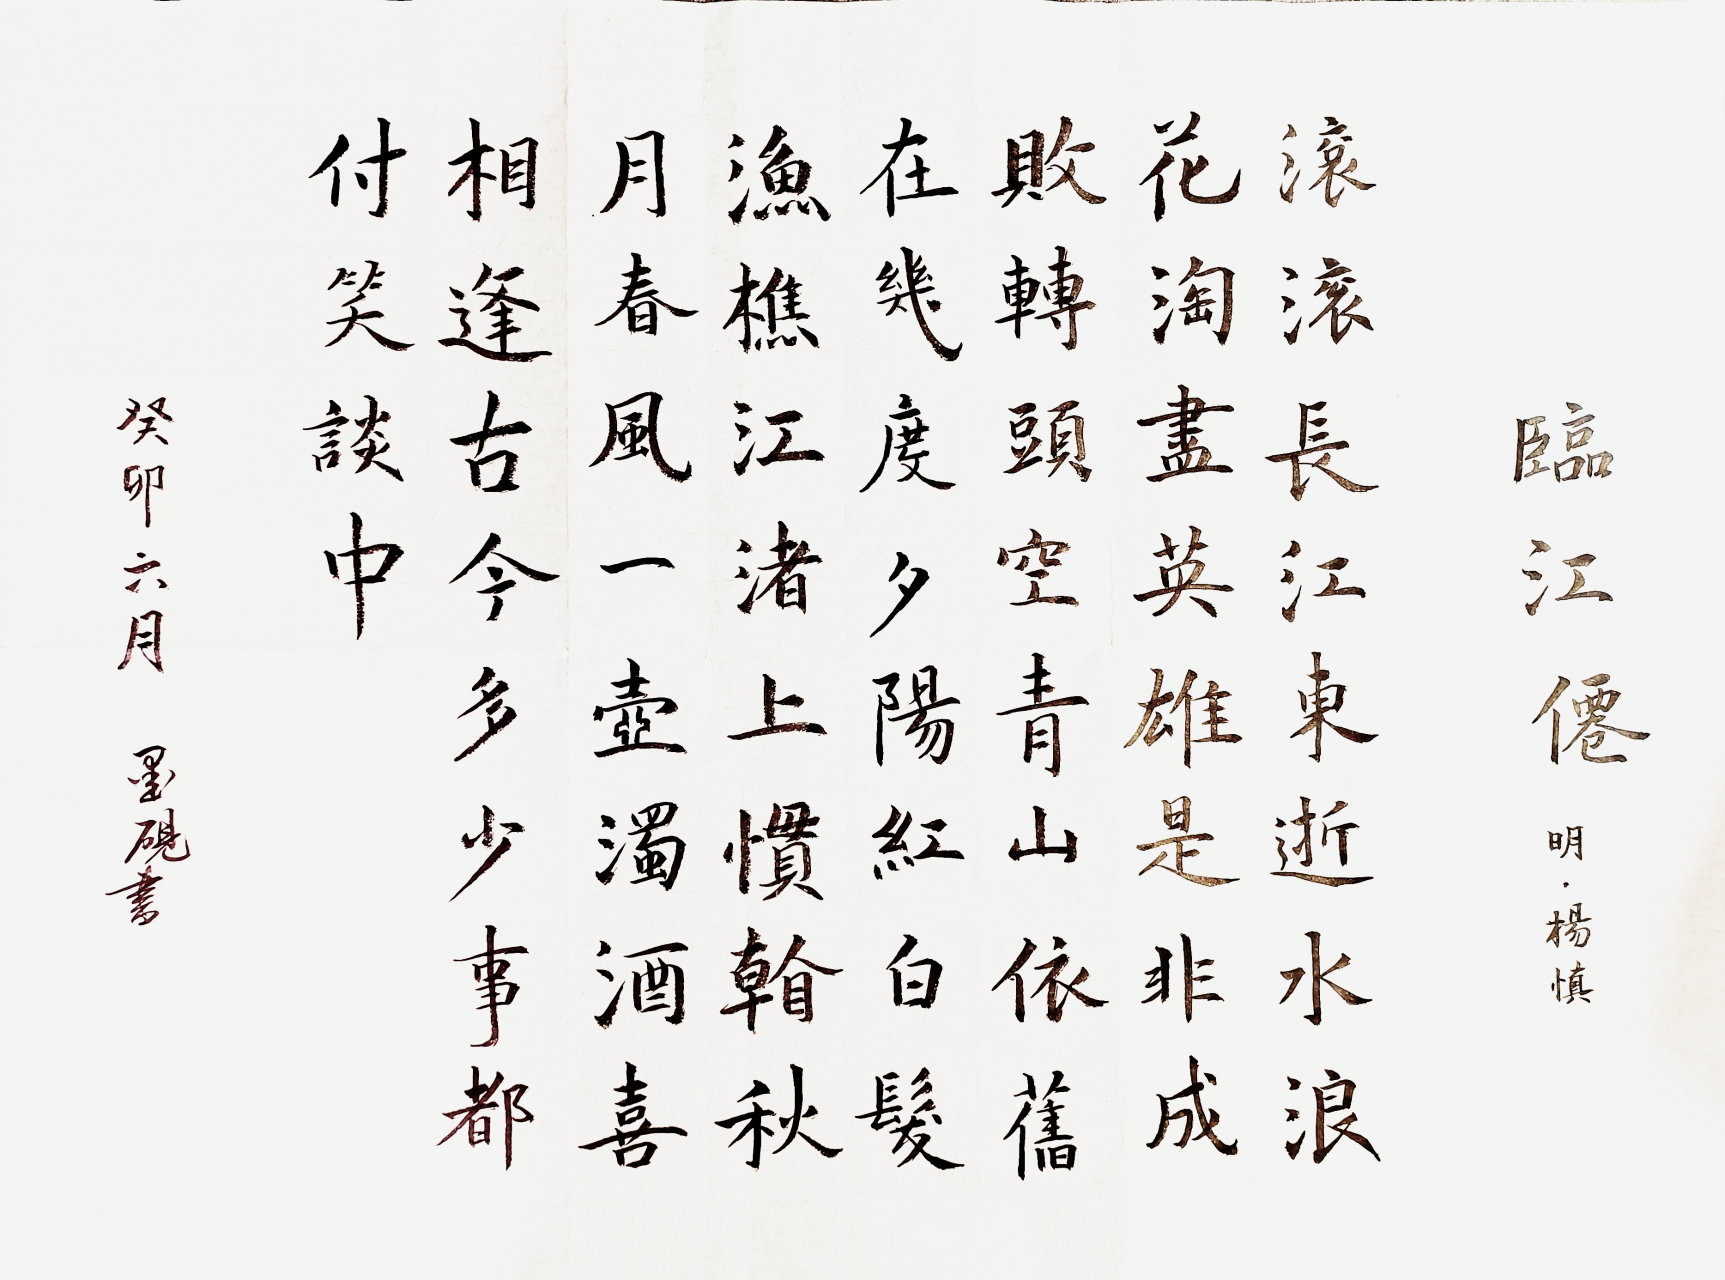 臨江僊 明·楊慎
滚滚長江東逝水浪
花淘盡英雄是非成
敗轉頭空青山依舊
在幾度夕陽紅白髮
漁樵江渚上慣看秋
月春風一壺濁酒喜
相逢古今多少事都
付笑談中
癸卯六月 墨硯書